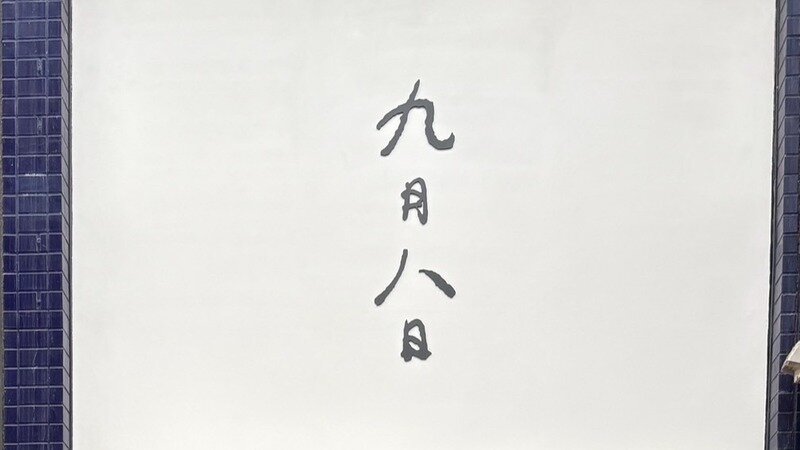 九月八日